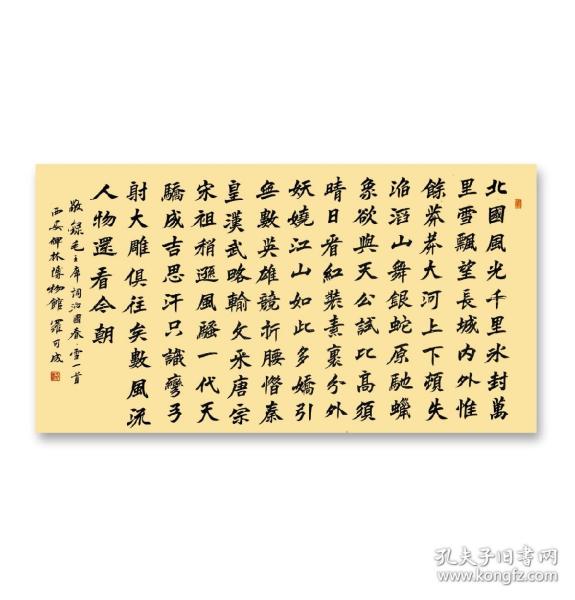 北國風光千里氷封萬
里雪飄望長城内外惟
餘莽莽大河上下頓失
滔滔山舞銀蛇原馳蠟
象欲與天公試比髙須
晴日看紅裝素裹分外
妖嬈江山如此多嬌引
無數英雄競折腰惜秦
皇漢武略輸文采唐宗
宋祖稍遜風騷一代天
驕成吉思汗只識彎弓
射大雕俱往矣數風流
人物還看今朝
敬錄毛主席詞沁園春雪一首
西安碑林博物館 羅可成
孔夫子旧书网
www.kongfz.com